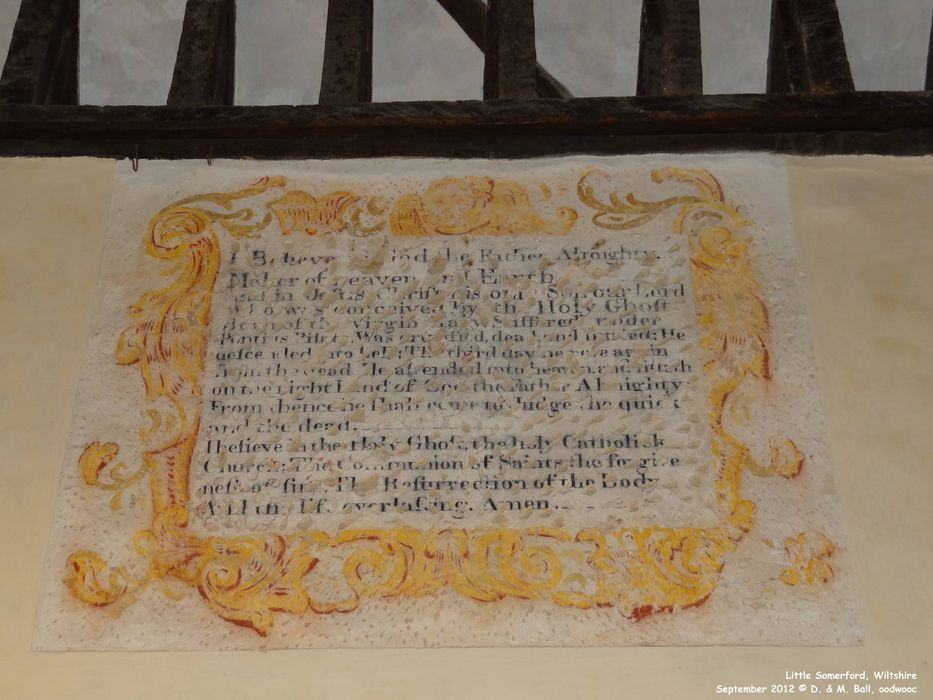 I Believe God the Father Almighty.
Maker of heaven and Earth
and in Jesus Christ his only Son our Lord
Who was conceived by the Holy Ghost
Born of the Virgin Mary Suffered under
Pontius Pilate Was crucified, dead and buried: He
descended into hell: The third day he rose again
from the dead He ascended into heaven and sitteth
on the right Hand of God the father Almighty:
From thence he shall come to Judge the quick
and the dead.
I believe in the Holy Ghost, the holy Catholick
Church: The Communion of Saints the forgive
ness of sins, The Resurrection of the Body
And the Life everlasting. Amen.
Little Somerford, Wiltshire
September 2012 © D. & M. Ball, oodwooc